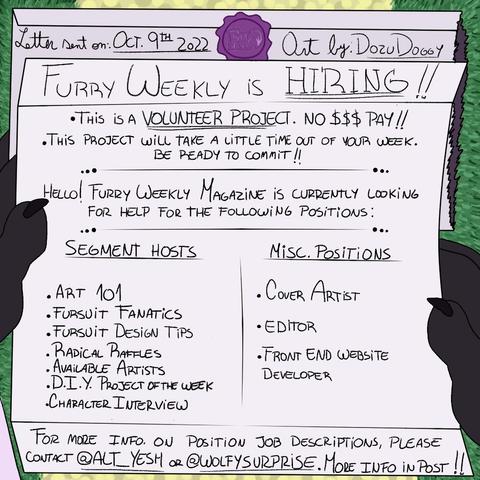 Letter sent on: Oct. 9TH 2022
Art by: DozuDoggy
FURRY WEEKLY IS HIRING!!
•THIS IS A VOLUNTEER PROJECT. NO $$$ PAY!!
•THIS PROJECT WILL TAKE A LITTLE TIME OUT OF YOUR WEEK.
BE READY TO COMMIT!!
HELLO! FURRY WEEKLY MAGAZINE IS CURRENTLY LOOKING
FOR HELP FOR THE FOLLOWING POSITIONS:
SEGMENT HOSTS
•ART 101
•FURSUIT FANATICS
•FURSUIT DESIGN TIPS
•RADICAL RAFFLES
•AVAILABLE ARTISTS
•D.I.Y. PROJECT OF THE WEEK
•CHARACTER INTERVIEW
MISC. POSITIONS
•COVER ARTIST
•EDITOR
•FRONT END WEBSITE
DEVELOPER
FOR MORE INFO. ON POSITION JOB DESCRIPTIONS, PLEASE
CONTACT @ALT_YESH OR @WOLFYSURPRISE. MORE INFO IN POST!!